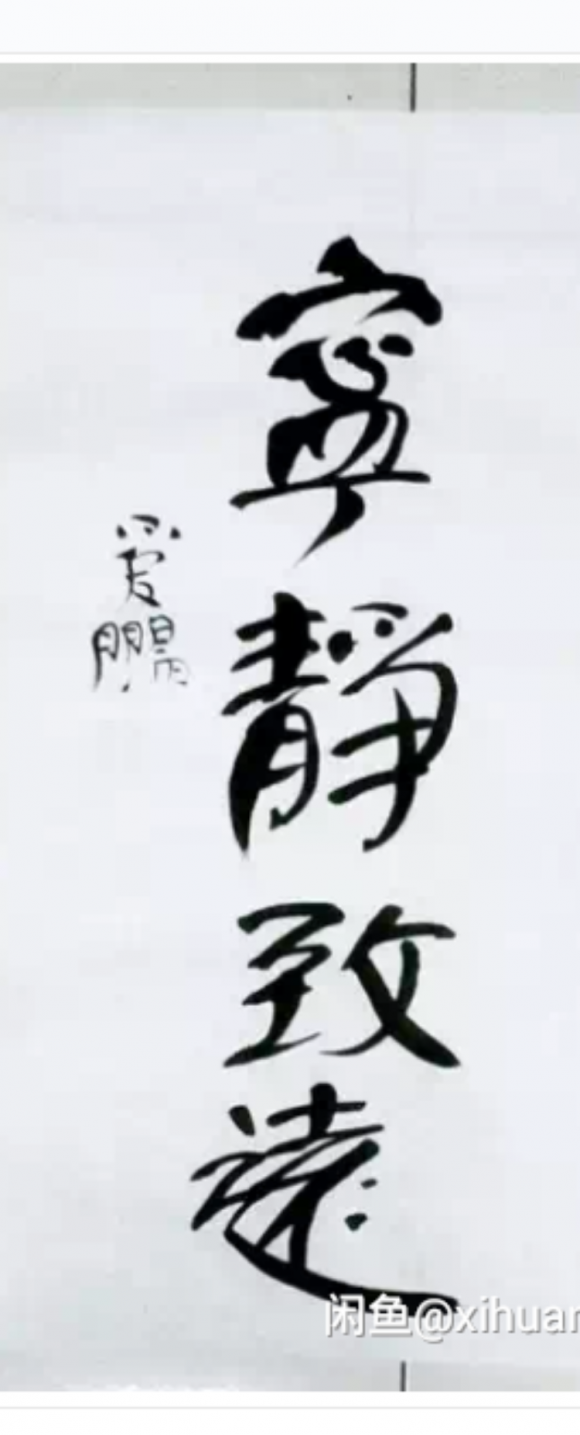 寧靜致遠
爱鹏
闲鱼@xihuan